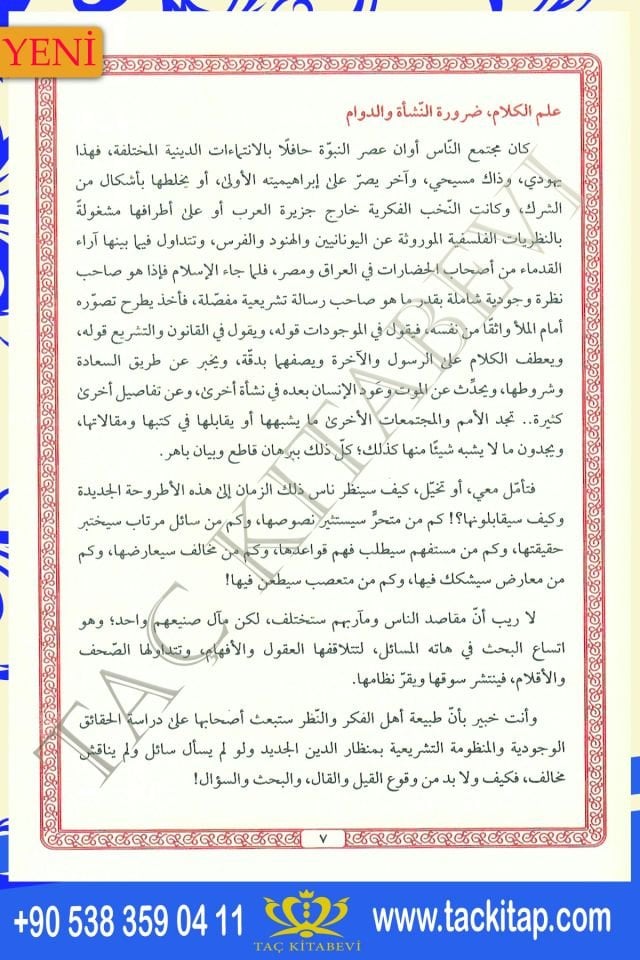 YENİ
علم الكلام، ضرورة النّشأة والدوام
كان مجتمع النّاس أوان عصر النبوّة حافلًا بالانتماءات الدينية المختلفة، فهذا
يهودي، وذاك مسيحي، وآخر يصرّ على إبراهيميته الأولىٰ، أو يخلطها بأشكال من
الشرك، وكانت النّخب الفكرية خارج جزيرة العرب أو علىٰ أطرافها مشغولةً
بالنظريات الفلسفية الموروثة عن اليونانيين والهنود والفرس، وتتداول فيما بينها آراء
القدماء من أصحاب الحضارات في العراق ومصر، فلما جاء الإسلام فإذا هو صاحب
نظرة وجودية شاملة بقدر ما هو صاحب رسالة تشريعية مفصّلة، فأخذ يطرح تصوّره
أمام الملأ واثقًا من نفسه، فيقول في الموجودات قوله، ويقول في القانون والتشريع قوله،
ويعطف الكلام علىٰ الرسول والآخرة ويصفهما بدقّة، ويخبر عن طريق السعادة
وشروطها، ويحدِّث عن الموت وعَود الإنسان بعده في نشأة أخرىٰ، وعن تفاصيل أخرىٰ
كثيرة.. تجد الأمم والمجتمعات الأخرىٰ ما يشبهها أو يقابلها في كتبها ومقالاتها،
ويجدون ما لا يشبه شيئًا منها كذلك؛ كلّ ذلك ببرهان قاطع وبيان باهر.
فتأمّل معي، أو تخيّل، كيف سينظر ناس ذلك الزمان إلى هذه الأطروحة الجديدة
وكيف سيقابلونها؟! كم من متحرٍّ سيستثير نصوصها، وكم من سائل مرتاب سيختبر
حقيقتها، وكم من مستفهم سيطلب فهم قواعدها، وكم من مخالف سيعارضها، وكم
من معارض سيشكك فيها، وكم من متعصب سيطعن فيها!
لا ريب أنّ مقاصد الناس ومآربهم ستختلف، لكن مآل صنيعهم واحد؛ وهو
اتساع البحث في هاته المسائل، لتتلاقفها العقول والأفهام، وتتداولها الصّحف
والأقلام، فينتشر سوقها ويقرّ نظامها.
وأنت خبير بأنّ طبيعة أهل الفكر والنّظر ستبعث أصحابها علىٰ دراسة الحقائق
الوجودية والمنظومة التشريعية بمنظار الدين الجديد ولو لم يسأل سائل ولم يناقش
مخالف، فكيف ولا بد من وقوع القيل والقال، والبحث والسؤال!
٧
TAÇ KITABEVİ
+90 538 359 04 11
TAÇ KİTABEVİ
www.tackitap.com